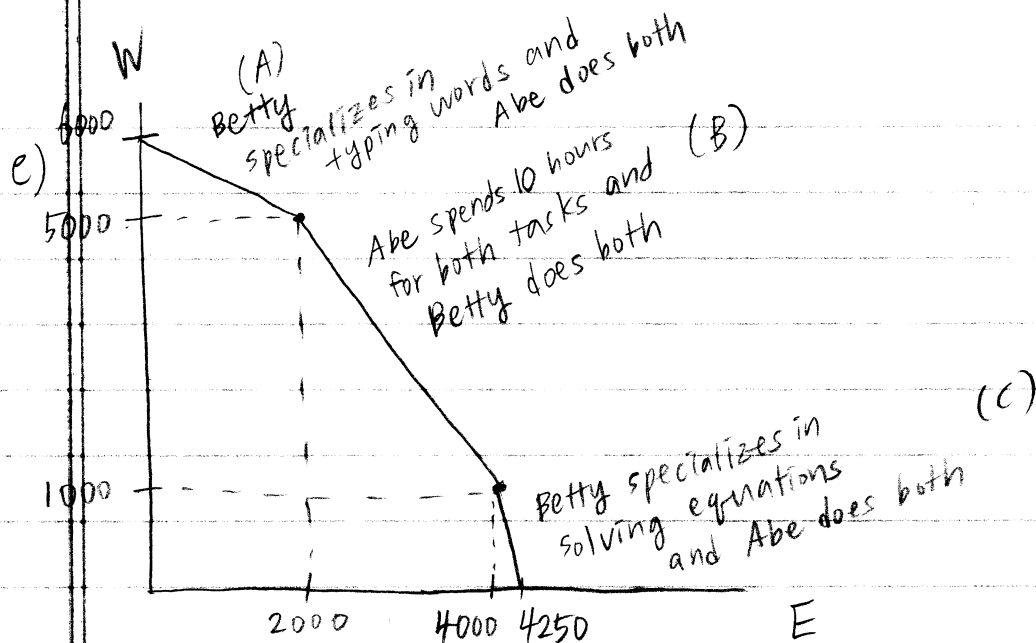 W
6000
e)
5000
1000
(A)
Betty
specializes in
typing words and
Abe does both
(B)
Abe spends 10 hours
for both tasks and
Betty does both
(C)
Betty specializes in
solving equations
and Abe does both
2000
4000
4250
E